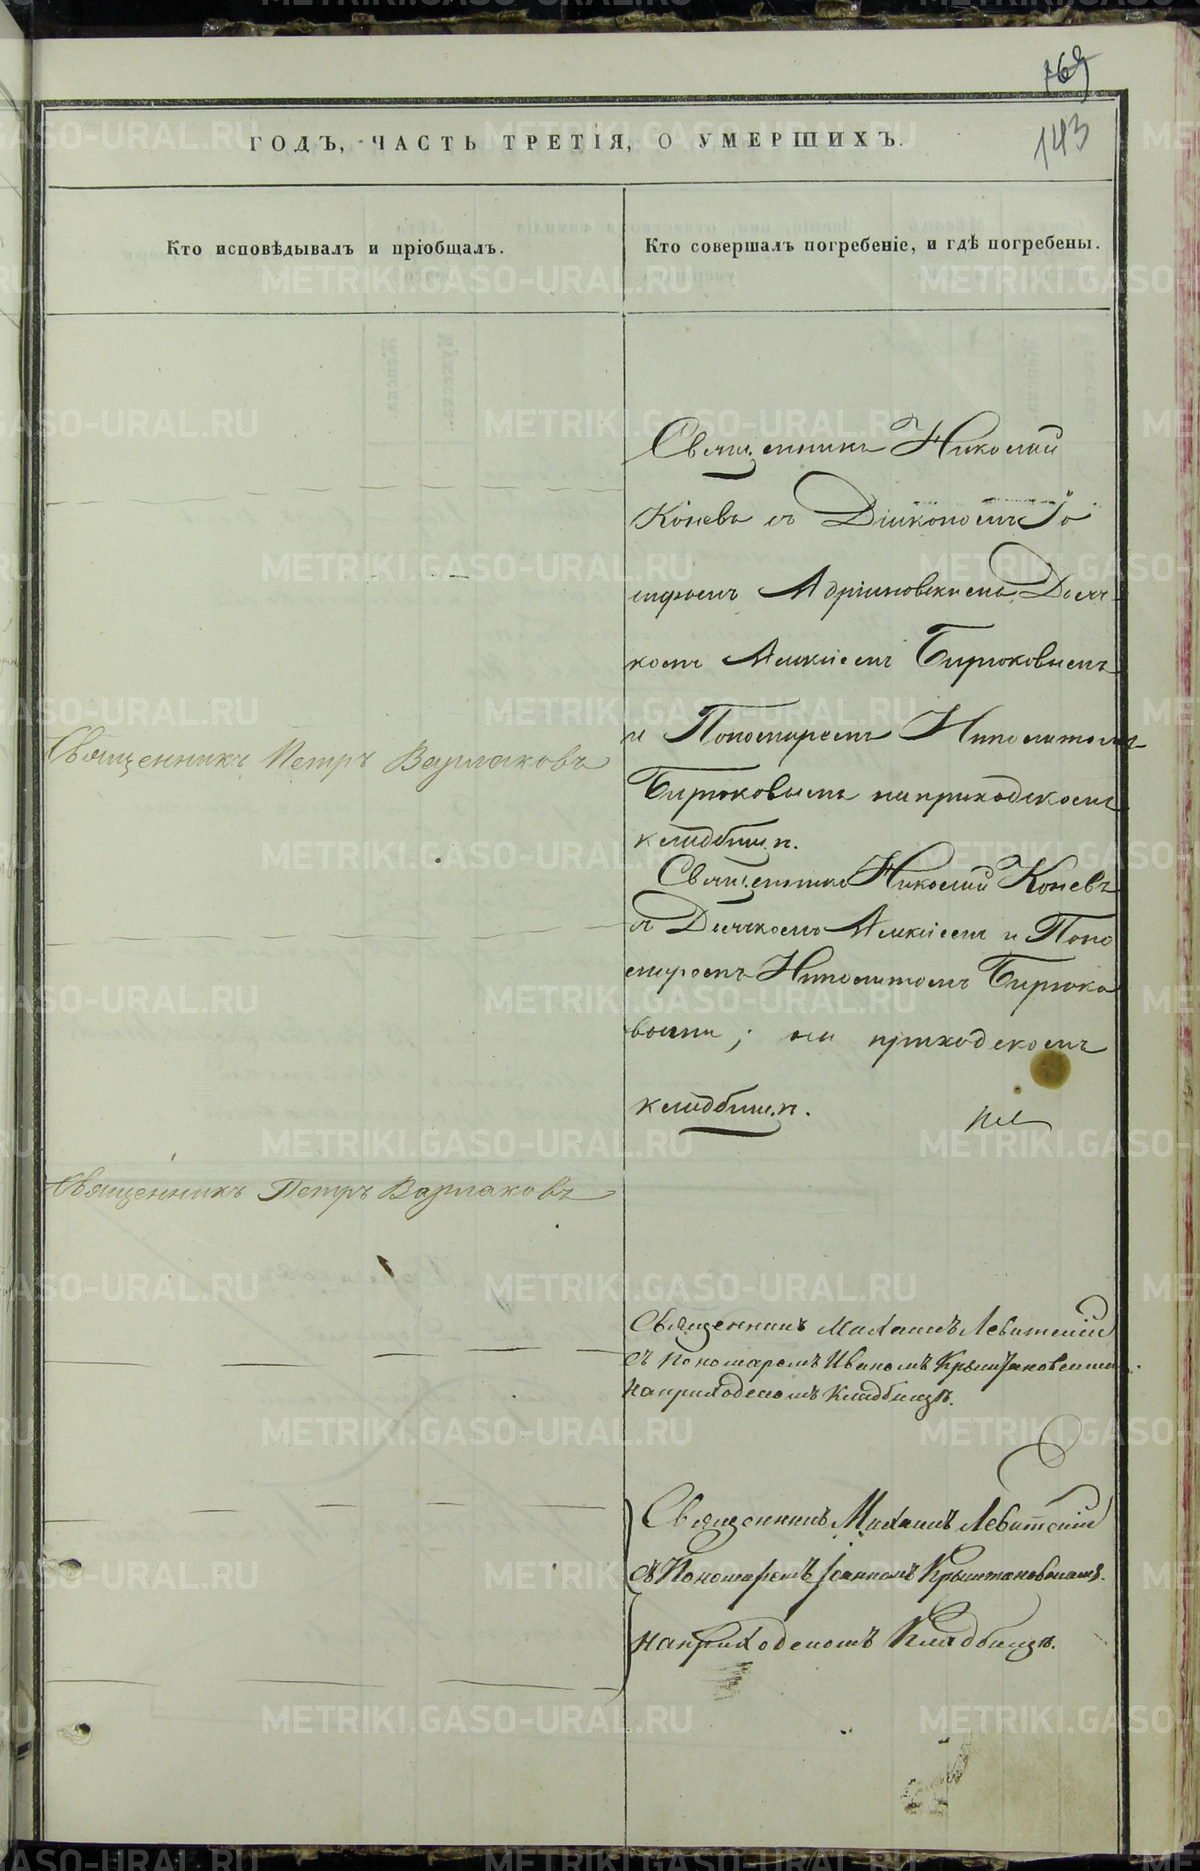 169
143
ГОДЪ, ЧАСТЬ ТРЕТІЯ, О УМЕРШИХЪ.
Кто исповѣдывалъ и пріобщалъ.
Кто совершалъ погребеніе, и гдѣ погребены.
Священникъ Николай
Коневъ съ Діакономъ Іо
сифомъ Адріановскимъ Дьяч
комъ Алексіемъ Бирюковымъ
и Пономаремъ Ипполитомъ
Бирюковымъ на приходскомъ
кладбищѣ.
Священникъ Петръ Варлаковъ
Священникъ Николай Коневъ
съ Дьячкомъ Алексіемъ и Поно
маремъ Ипполитомъ Бирюко
выми; на приходскомъ
кладбищѣ.
Священникъ Петръ Варлаковъ
Священникъ Михаилъ Левитскій
съ пономаремъ Иваномъ
на приходскомъ Кладбищѣ.
Священникъ Михаилъ Левитскій
съ Пономаремъ Іоанномъ
на приходскомъ Кладбищѣ.
METRIKI.GASO-URAL.RU